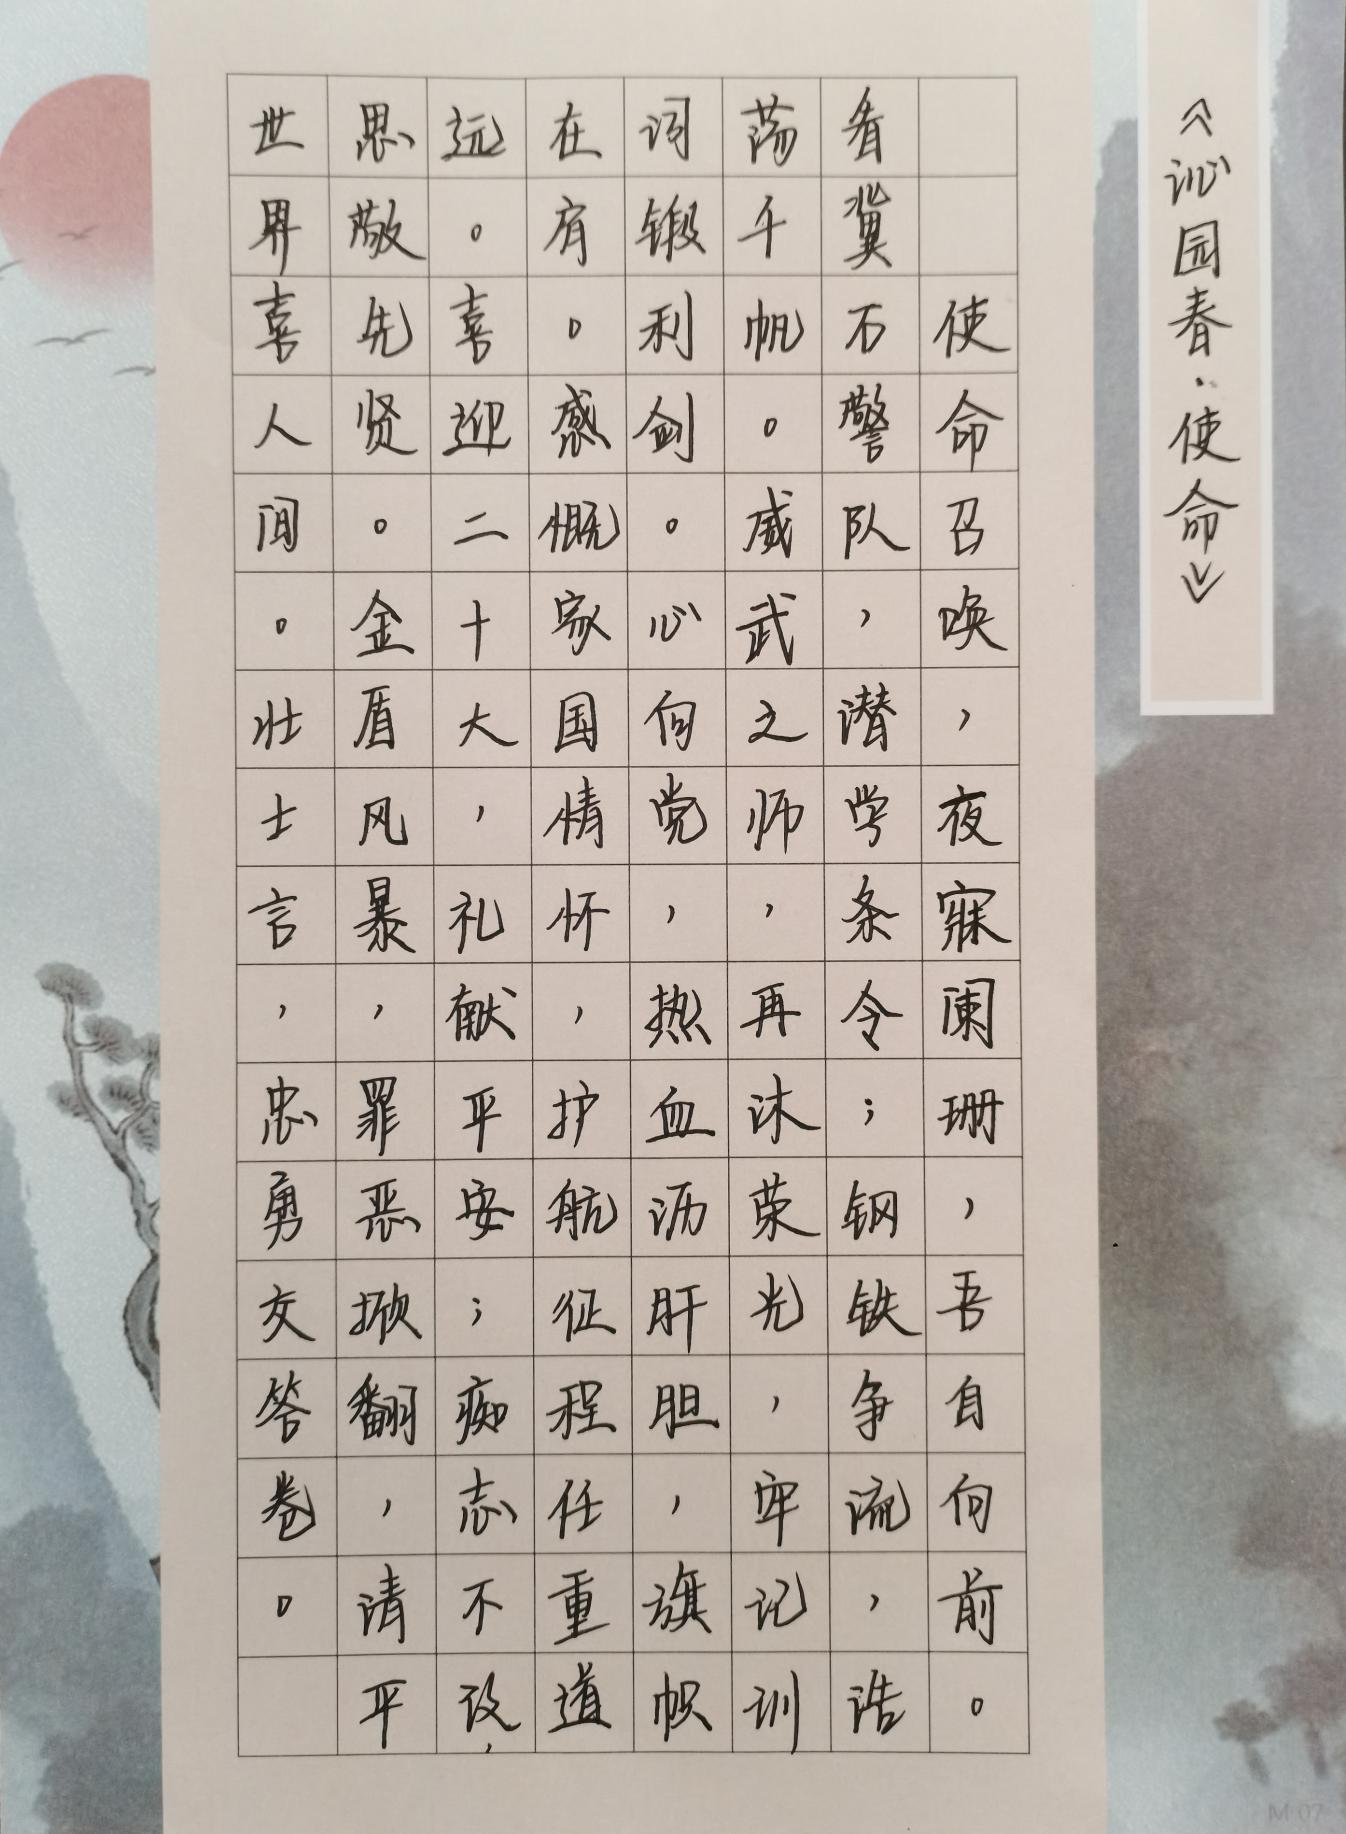 《沁园春·使命》
使命召唤，夜寐阑珊，吾自向前。
看冀石警队，潜学条令；钢铁争流，浩
荡千帆。威武之师，再沐荣光，牢记训
词锻利剑。心向党，热血沥肝胆，旗帜
在肩。感慨家国情怀，护航征程任重道
远。喜迎二十大，礼献平安；痴志不改，
思敬先贤。金盾风暴，罪恶掀翻，清平
世界喜人间。壮士言，忠勇交答卷。
M 07